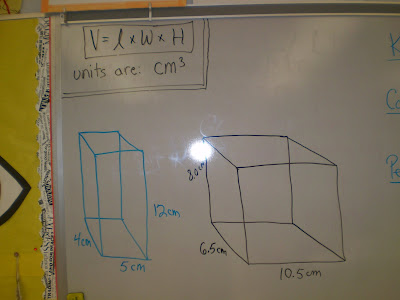 V = l x W x H
units are: cm³
12cm
4cm
5cm
8.0cm
6.5cm
10.5cm
K
Co
Pe